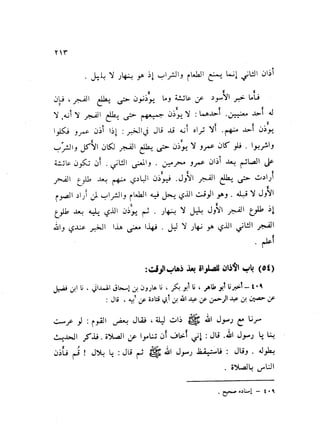 ٢١٣
أذان الثاني إنما يمنع الطعام والشراب إذ هو بنهار لا بليل .
فأما خبر الأسود عن عائشة وما يؤذنون حتى يطلع الفجر ، فإن
له أحد معنيين . أحدهما : لا يؤذن جميعهم حتى يطلع الفجر لا أنه لا
يؤذن أحد منهم . ألا تراه أنه قد قال في الخبر : إذا أذن عمرو فكلوا
واشربوا . فلو كان عمرو لا يؤذن حتى يطلع الفجر لكان الأكل والشرب
على الصائم بعد أذان عمرو محرمين . والمعنى الثاني : أن تكون عائشة
أرادت حتى يطلع الفجر الأول . فيؤذن البادي منهم بعد طلوع الفجر
الأول لا قبله . وهو الوقت الذي يحل فيه الطعام والشراب لمن أراد الصوم
إذ طلوع الفجر الأول بليل لا بنهار . ثم يؤذن الذي يليه بعد طلوع
الفجر الثاني الذي هو نهار لا ليل . فهذا معنى هذا الخبر عندي والله
أعلم .
(٥٤) باب الأذان للصلوة بعد ذهاب الوقت :
٤٠٩ - أخبرنا أبو طاهر ، نا أبو بكر ، نا هارون بن إسحاق الهمداني ، نا ابن فضيل
عن حصين بن عبد الرحمن عن عبد الله بن أبي قتادة عن أبيه ، قال :
سرنا مع رسول الله ﷺ ذات ليلة ، فقال بعض القوم : لو عرست
بنا يا رسول الله . قال : إني أخاف أن تناموا عن الصلاة . فذكر الحديث
بطوله . وقال : فاستيقظ رسول الله ﷺ ثم قال : يا بلال ! قم فأذن
الناس بالصلاة .
٤٠٩ - إسناده صحيح .